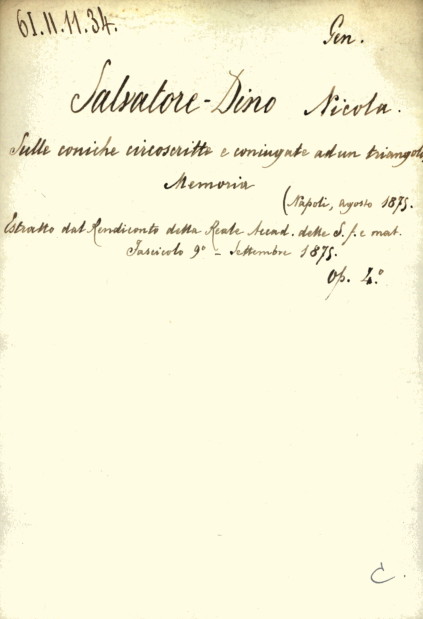 61.II.11.34.
Gen.
Salvatore-Dino Nicola.
Sulle coniche circoscritte e coniugate ad un triangolo,
Memoria
(Napoli, agosto 1875.
Estratto dal Rendiconto della Reale Accad. delle S. f. e mat.
Fascicolo 9° - Settembre 1875.
Op. 4.°
C.